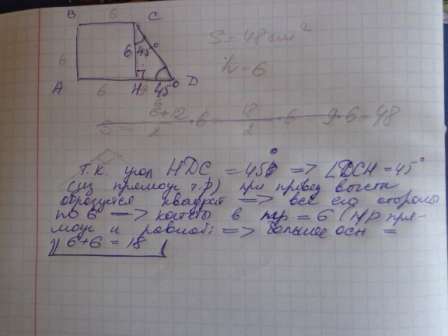 B 6 C
6 6 45°
A 6 H D
45°
S = 48 см²
h - 6
6+12
2 · 6 2 · 6 = 48
Т.К. угол HDC = 45° => ∠DCH = 45°
(из прямоуг тр) при провед высоты
образуется квадрат => все его стороны
по 6 => катеты в тр = 6 (HD пря-
моуг и равноб) => большее осн =
6+6 = 18